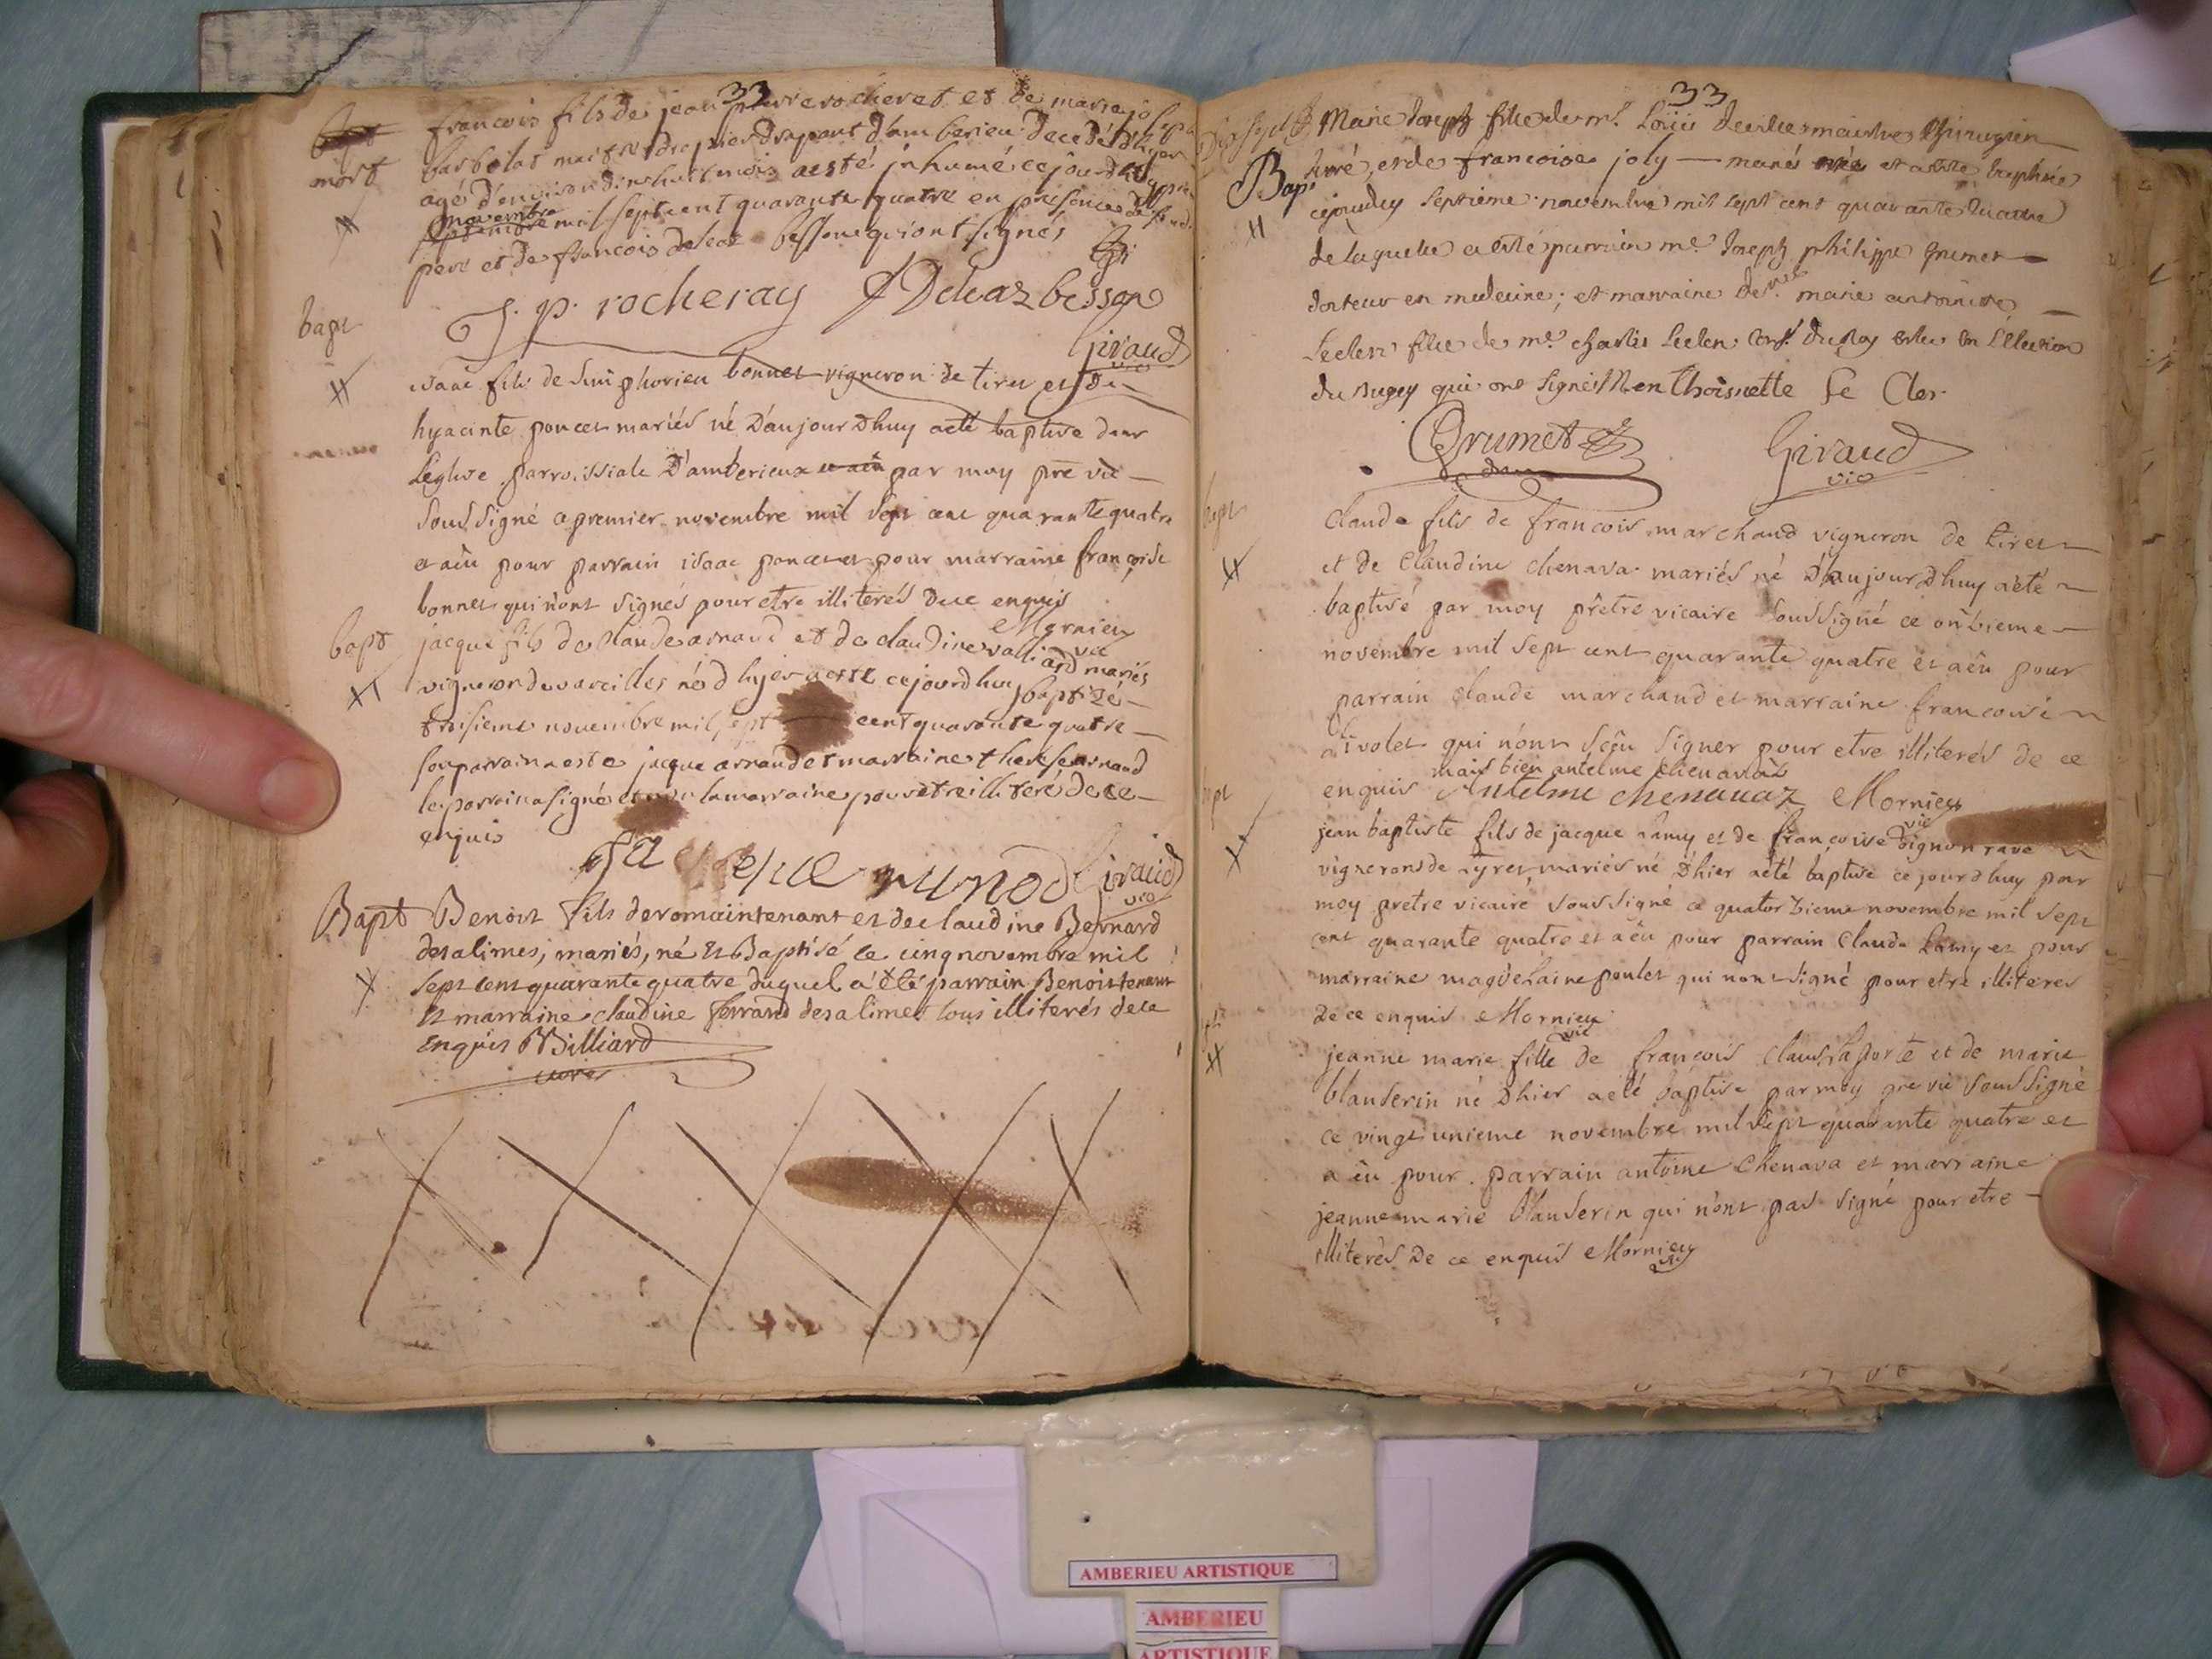 33
mort
francois fils de jean pierre rocheret et de marie joly
agé d'environ dixhuit mois a esté inhumé ce jourd'huy
novembre mil sept cent quarante quatre en presence de
pere et de francois deleat besson qui ont signés
J. p. rocheray Deleaz besson
Giraud
vic
bapt
isaac fils de simphorien bonnet vigneron de tiret et de
hyacinte poncet mariés né d'aujourdhuy a eté baptise dans
leglise parroissiale d'amberieux par moy pre vic
soussigné ce premier novembre mil sept cent quarante quatre
a aeu pour parrain isaac poncet et pour marraine françoise
bonnet qui n'ont signés pour etre illiterés de ce enquis
Mornieu
vic
bapt
jacque fils de claude arnaud et de claudine valliard mariés
vigneron de vareilles né d hyer a esté ce jourdhuy baptizé
troisieme novembre mil sept cent quarante quatre
son parrain a esté jacque arnaud et marraine therese arnaud
le parrain a signé et non la marraine pour etre illiteré de ce
enquis
Giraud
vic
Bapt
Benoit fils de romain tenant et de claudine Bernard
des alimes, mariés, né et Baptisé le cinq novembre mil
sept cent quarante quatre duquel a été parrain Benoit tenant
et marraine claudine ferrand des alimes tous illiterés de ce
enquis Billiard
curé
33
Bapt
Marie Joseph fille de mr. Louis maistre Chirurgien
juré, et de francoise joly mariés née et a esté baptisée
cejourdhuy septieme novembre mil sept cent quarante quatre
de laquelle a esté parrain me. Joseph philippe Grumet
docteur en medecine; et marraine delle. marie antoinette
Leclerc fille de me. charles Leclerc consr. du Roy esleu en L'election
du Bugey qui ont signés M en thoisnette Le Cler
Grumet Giraud
vic
bapt
claude fils de francois marchand vigneron de tiret
et de claudine chenava mariés né d'aujourdhuy a eté
baptisé par moy prêtre vicaire soussigné ce onzieme
novembre mil sept cent quarante quatre et a eu pour
parrain claude marchand et marraine francoise
qui n'ont sçeu signer pour etre illiterés de ce
mais bien antelme chenavaz
enquis Antelme chenavaz Mornieu
vic
bapt
jean baptiste fils de jacque Lamy et de françoise
vignerons de tyret mariés né d'hier a eté baptise ce jourdhuy par
moy pretre vicaire soussigné ce quatorzieme novembre mil sept
cent quarante quatre et a eu pour parrain claude Lamy et pour
marraine magdelaine poulet qui n'ont signé pour etre illiteres
de ce enquis Mornieu
vic
jeanne marie fille de françois claus laporte et de marie
blanderin né d'hier a eté baptise par moy pre vic soussigné
ce vingt unieme novembre mil sept quarante quatre et
a eu pour parrain antoine chenava et marraine
jeanne marie blanderin qui n'ont pas signé pour etre
illiterés de ce enquis Mornieu
vic
AMBERIEU ARTISTIQUE
AMBERIEU
ARTISTIQUE